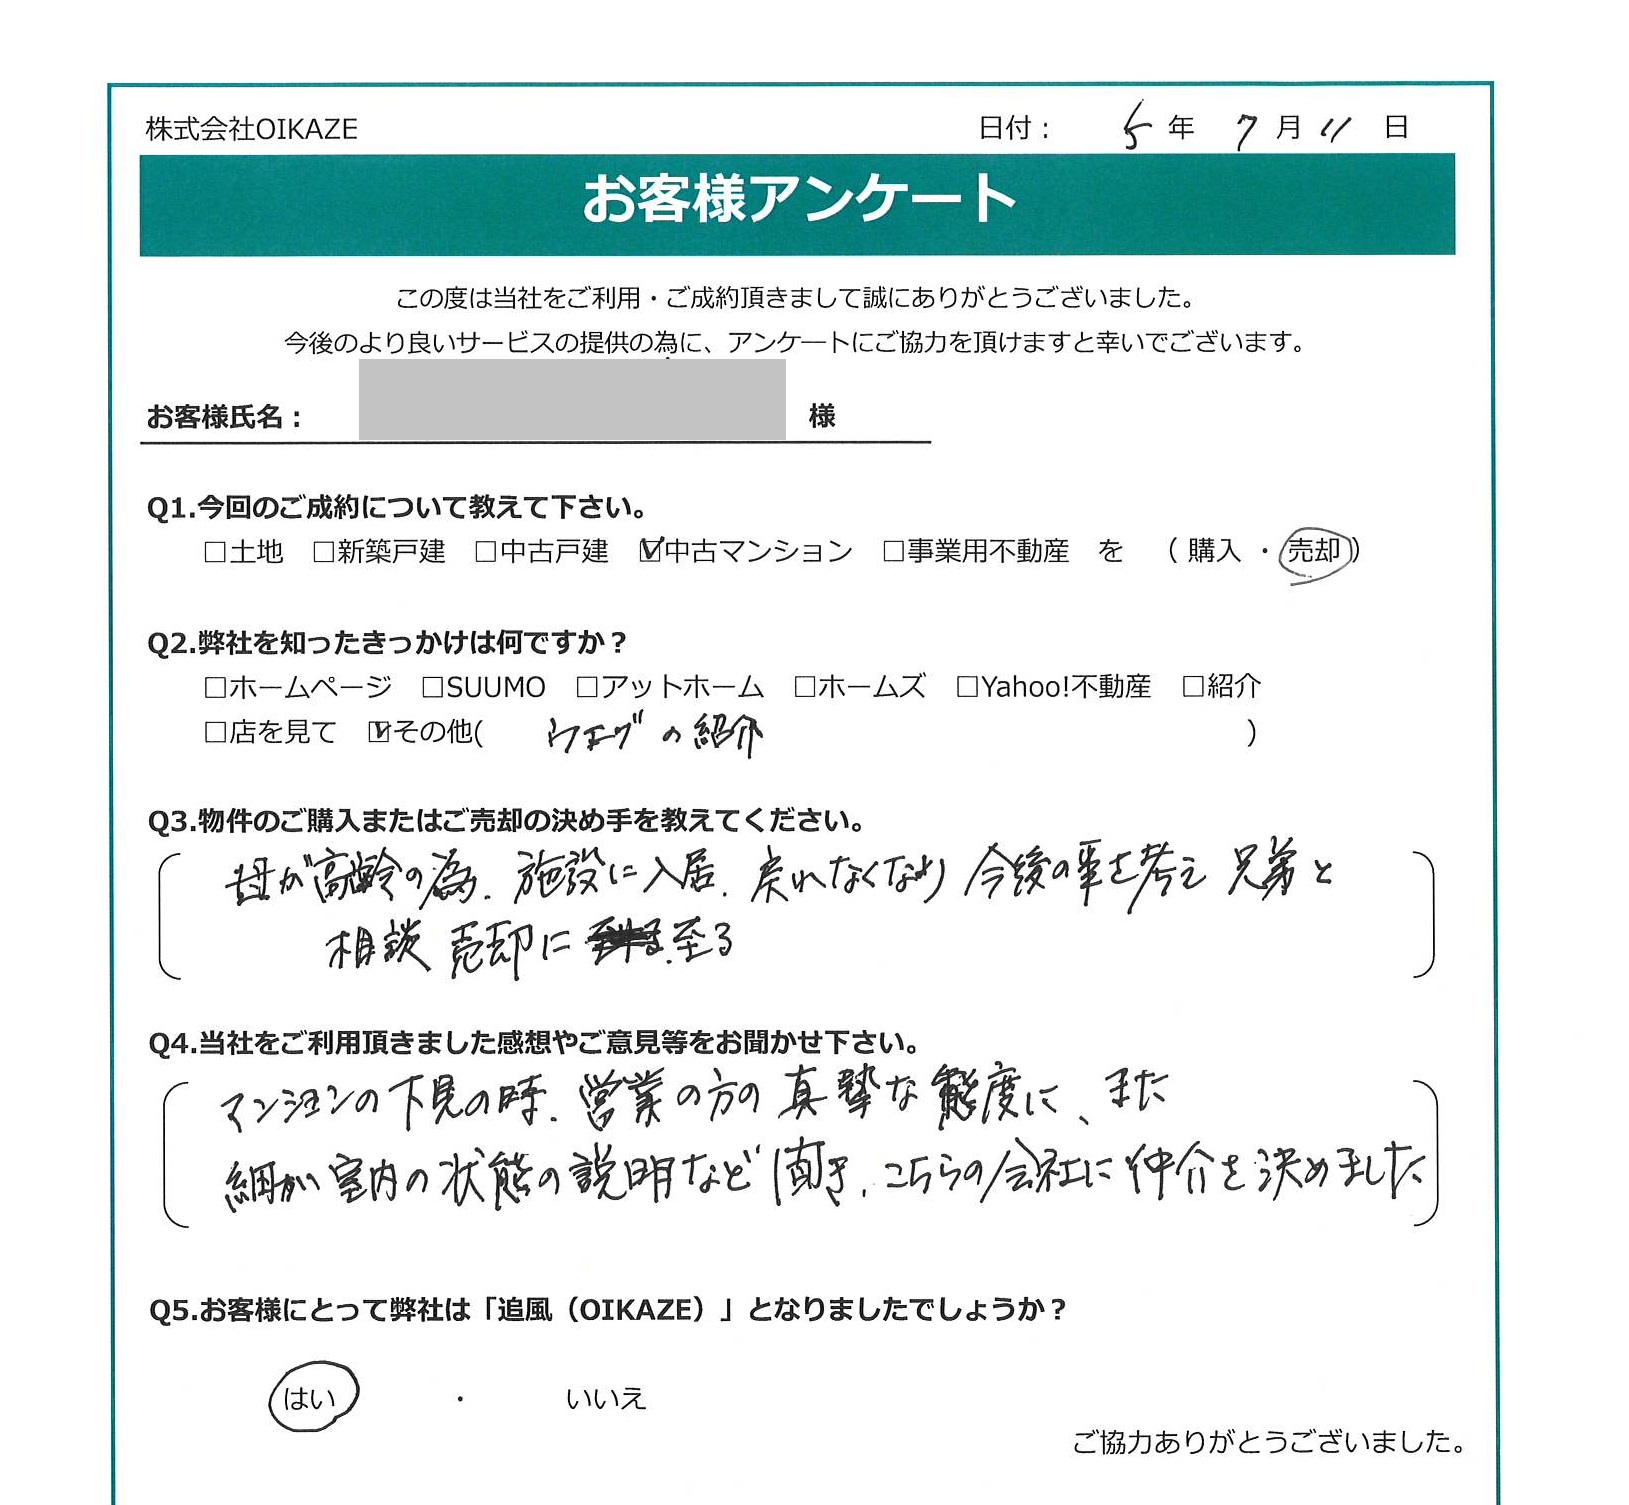 株式会社OIKAZE
日付： 5 年 7 月 11 日
お客様アンケート
この度は当社をご利用・ご成約頂きまして誠にありがとうございました。
今後のより良いサービスの提供の為に、アンケートにご協力を頂けますと幸いでございます。
お客様氏名： 様
Q1.今回のご成約について教えて下さい。
□土地 □新築戸建 □中古戸建 ☑中古マンション □事業用不動産 を （ 購入 ・ 売却 ）
Q2.弊社を知ったきっかけは何ですか？
□ホームページ □SUUMO □アットホーム □ホームズ □Yahoo!不動産 □紹介
□店を見て ☑その他( ウェブの紹介 )
Q3.物件のご購入またはご売却の決め手を教えてください。
母が高齢の為、施設に入居、戻れなくなり 今後の事を考え 兄弟と
相談 売却に 至る
Q4.当社をご利用頂きました感想やご意見等をお聞かせ下さい。
マンションの下見の時、営業の方の真摯な態度に、また
細かい室内の状態の説明など頂き、こちらの会社に仲介を決めました
Q5.お客様にとって弊社は「追風（OIKAZE）」となりましたでしょうか？
はい ・ いいえ
ご協力ありがとうございました。